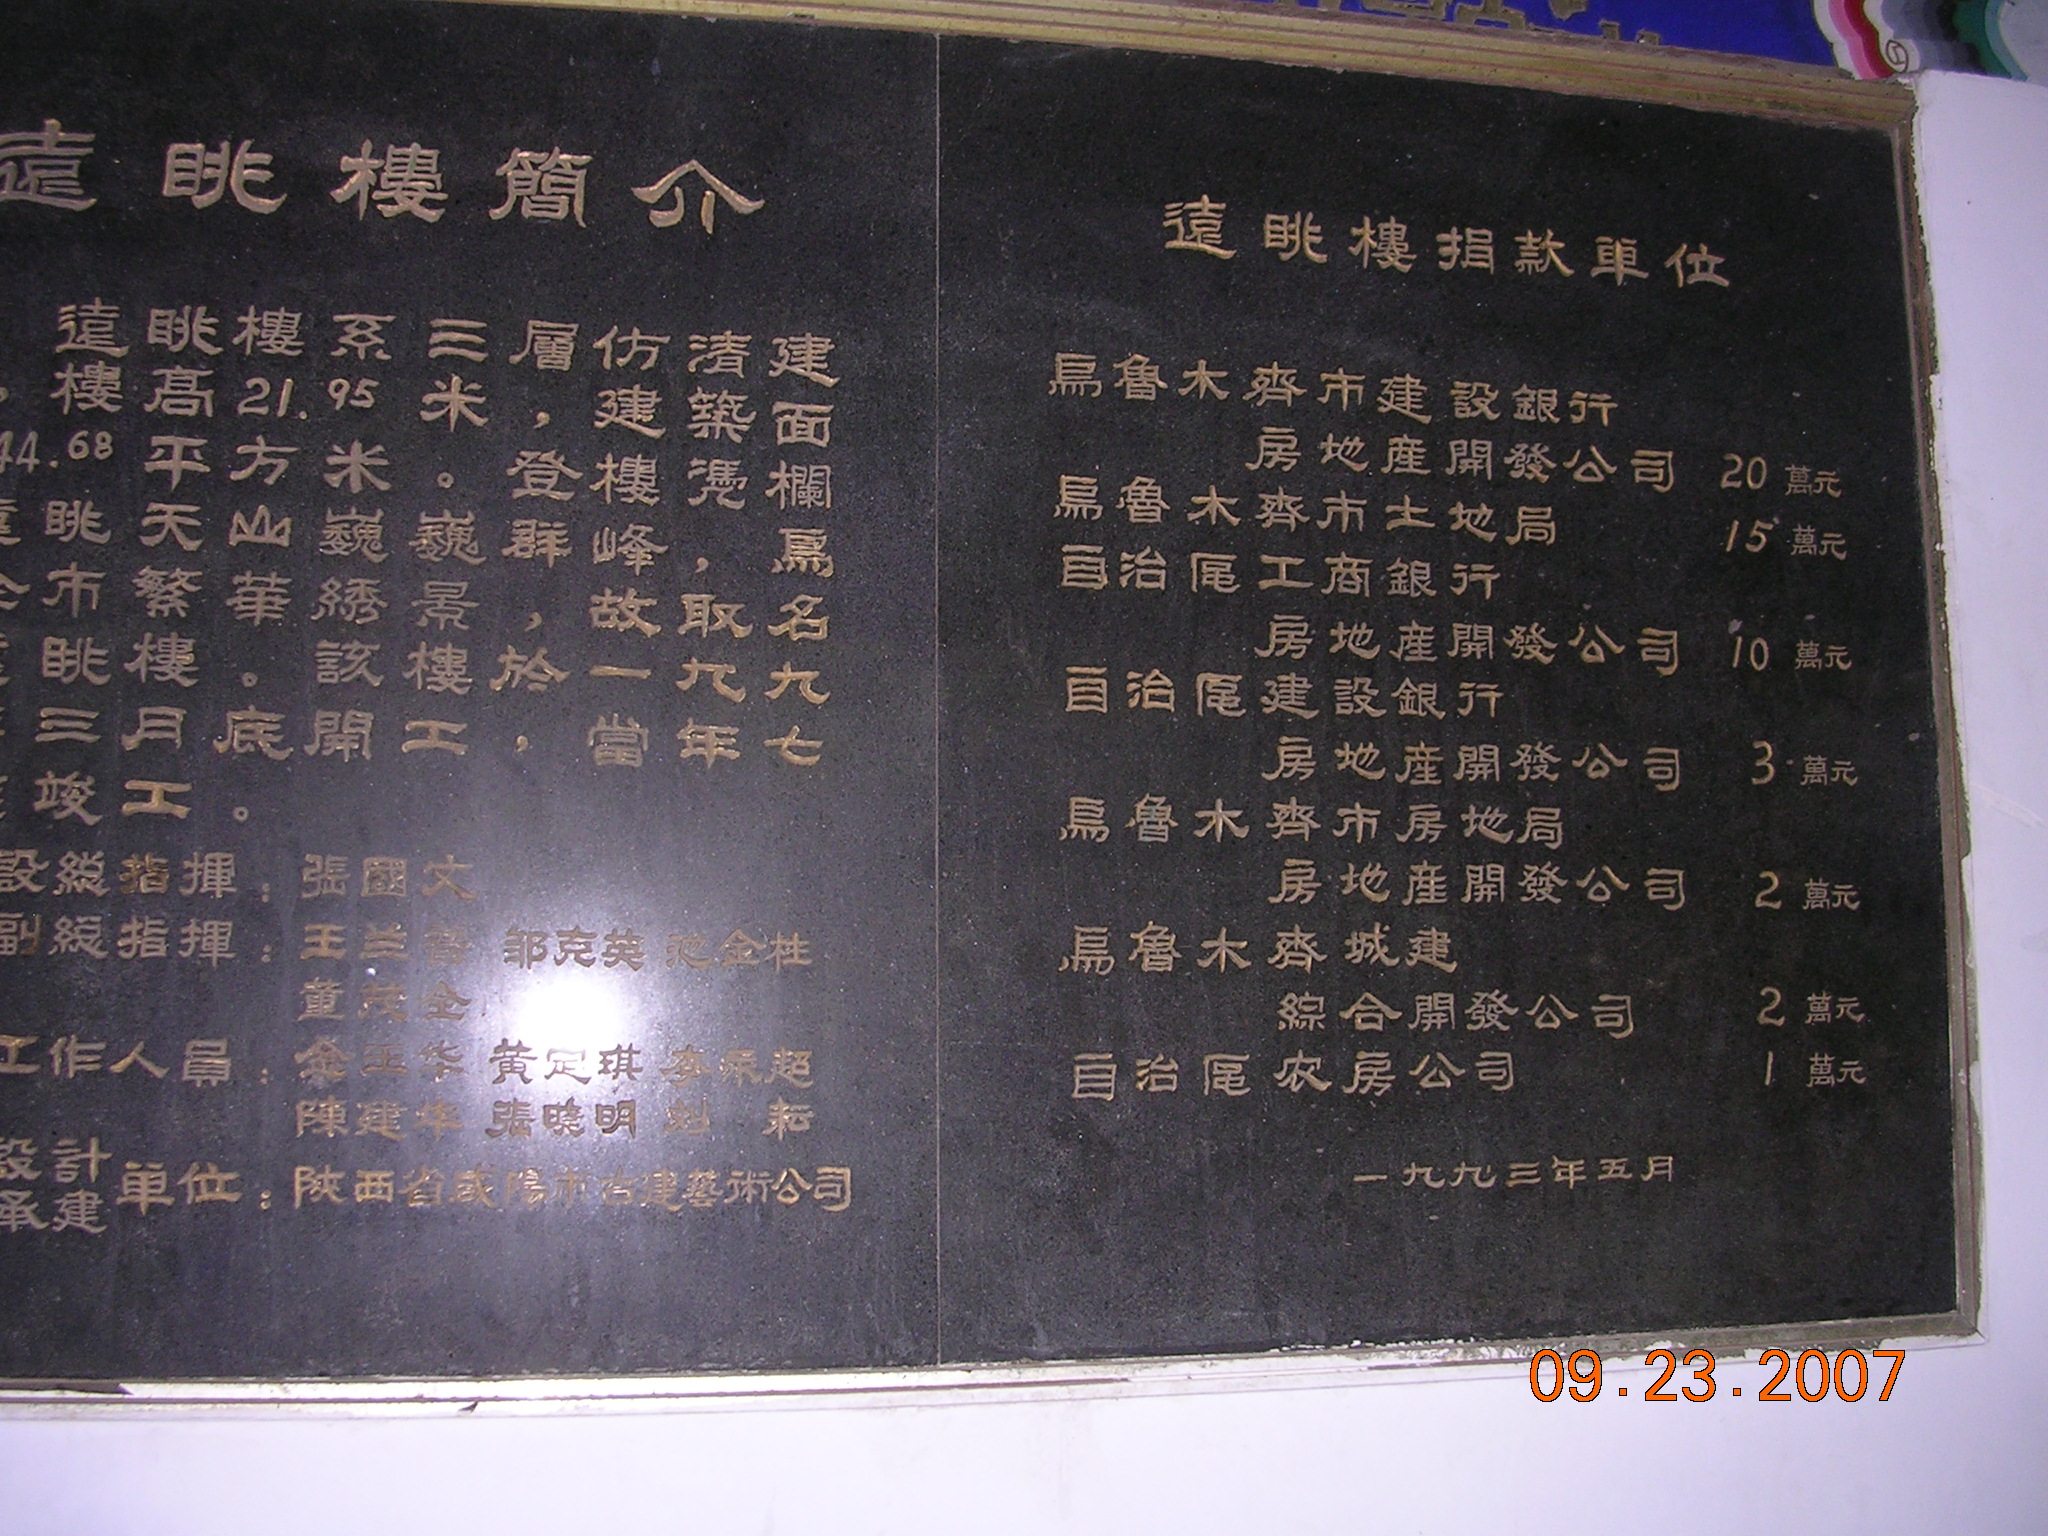 遠眺樓簡介
遠眺樓系三層仿清建
，樓高21.95米，建築面
44.68平方米。登樓憑欄
眺天山巍巍群峰，爲
市繁華綉景，故取名
眺樓。該樓於一九九
三月底開工，當年七
竣工。
設總指揮：張國文
副總指揮：王兰 邹克英 池金柱
董茂全
工作人員：余玉华 黄定琪 李 超
陳建华 張曉明 刘 耘
設計
承建
單位：陝西省咸陽市古建藝術公司
遠眺樓捐款單位
烏魯木齊市建設銀行
房地産開發公司 20 萬元
烏魯木齊市土地局 15 萬元
自治區工商銀行
房地産開發公司 10 萬元
自治區建設銀行
房地産開發公司 3 萬元
烏魯木齊市房地局
房地産開發公司 2 萬元
烏魯木齊城建
綜合開發公司 2 萬元
自治區农房公司 1 萬元
一九九三年五月
09.23.2007